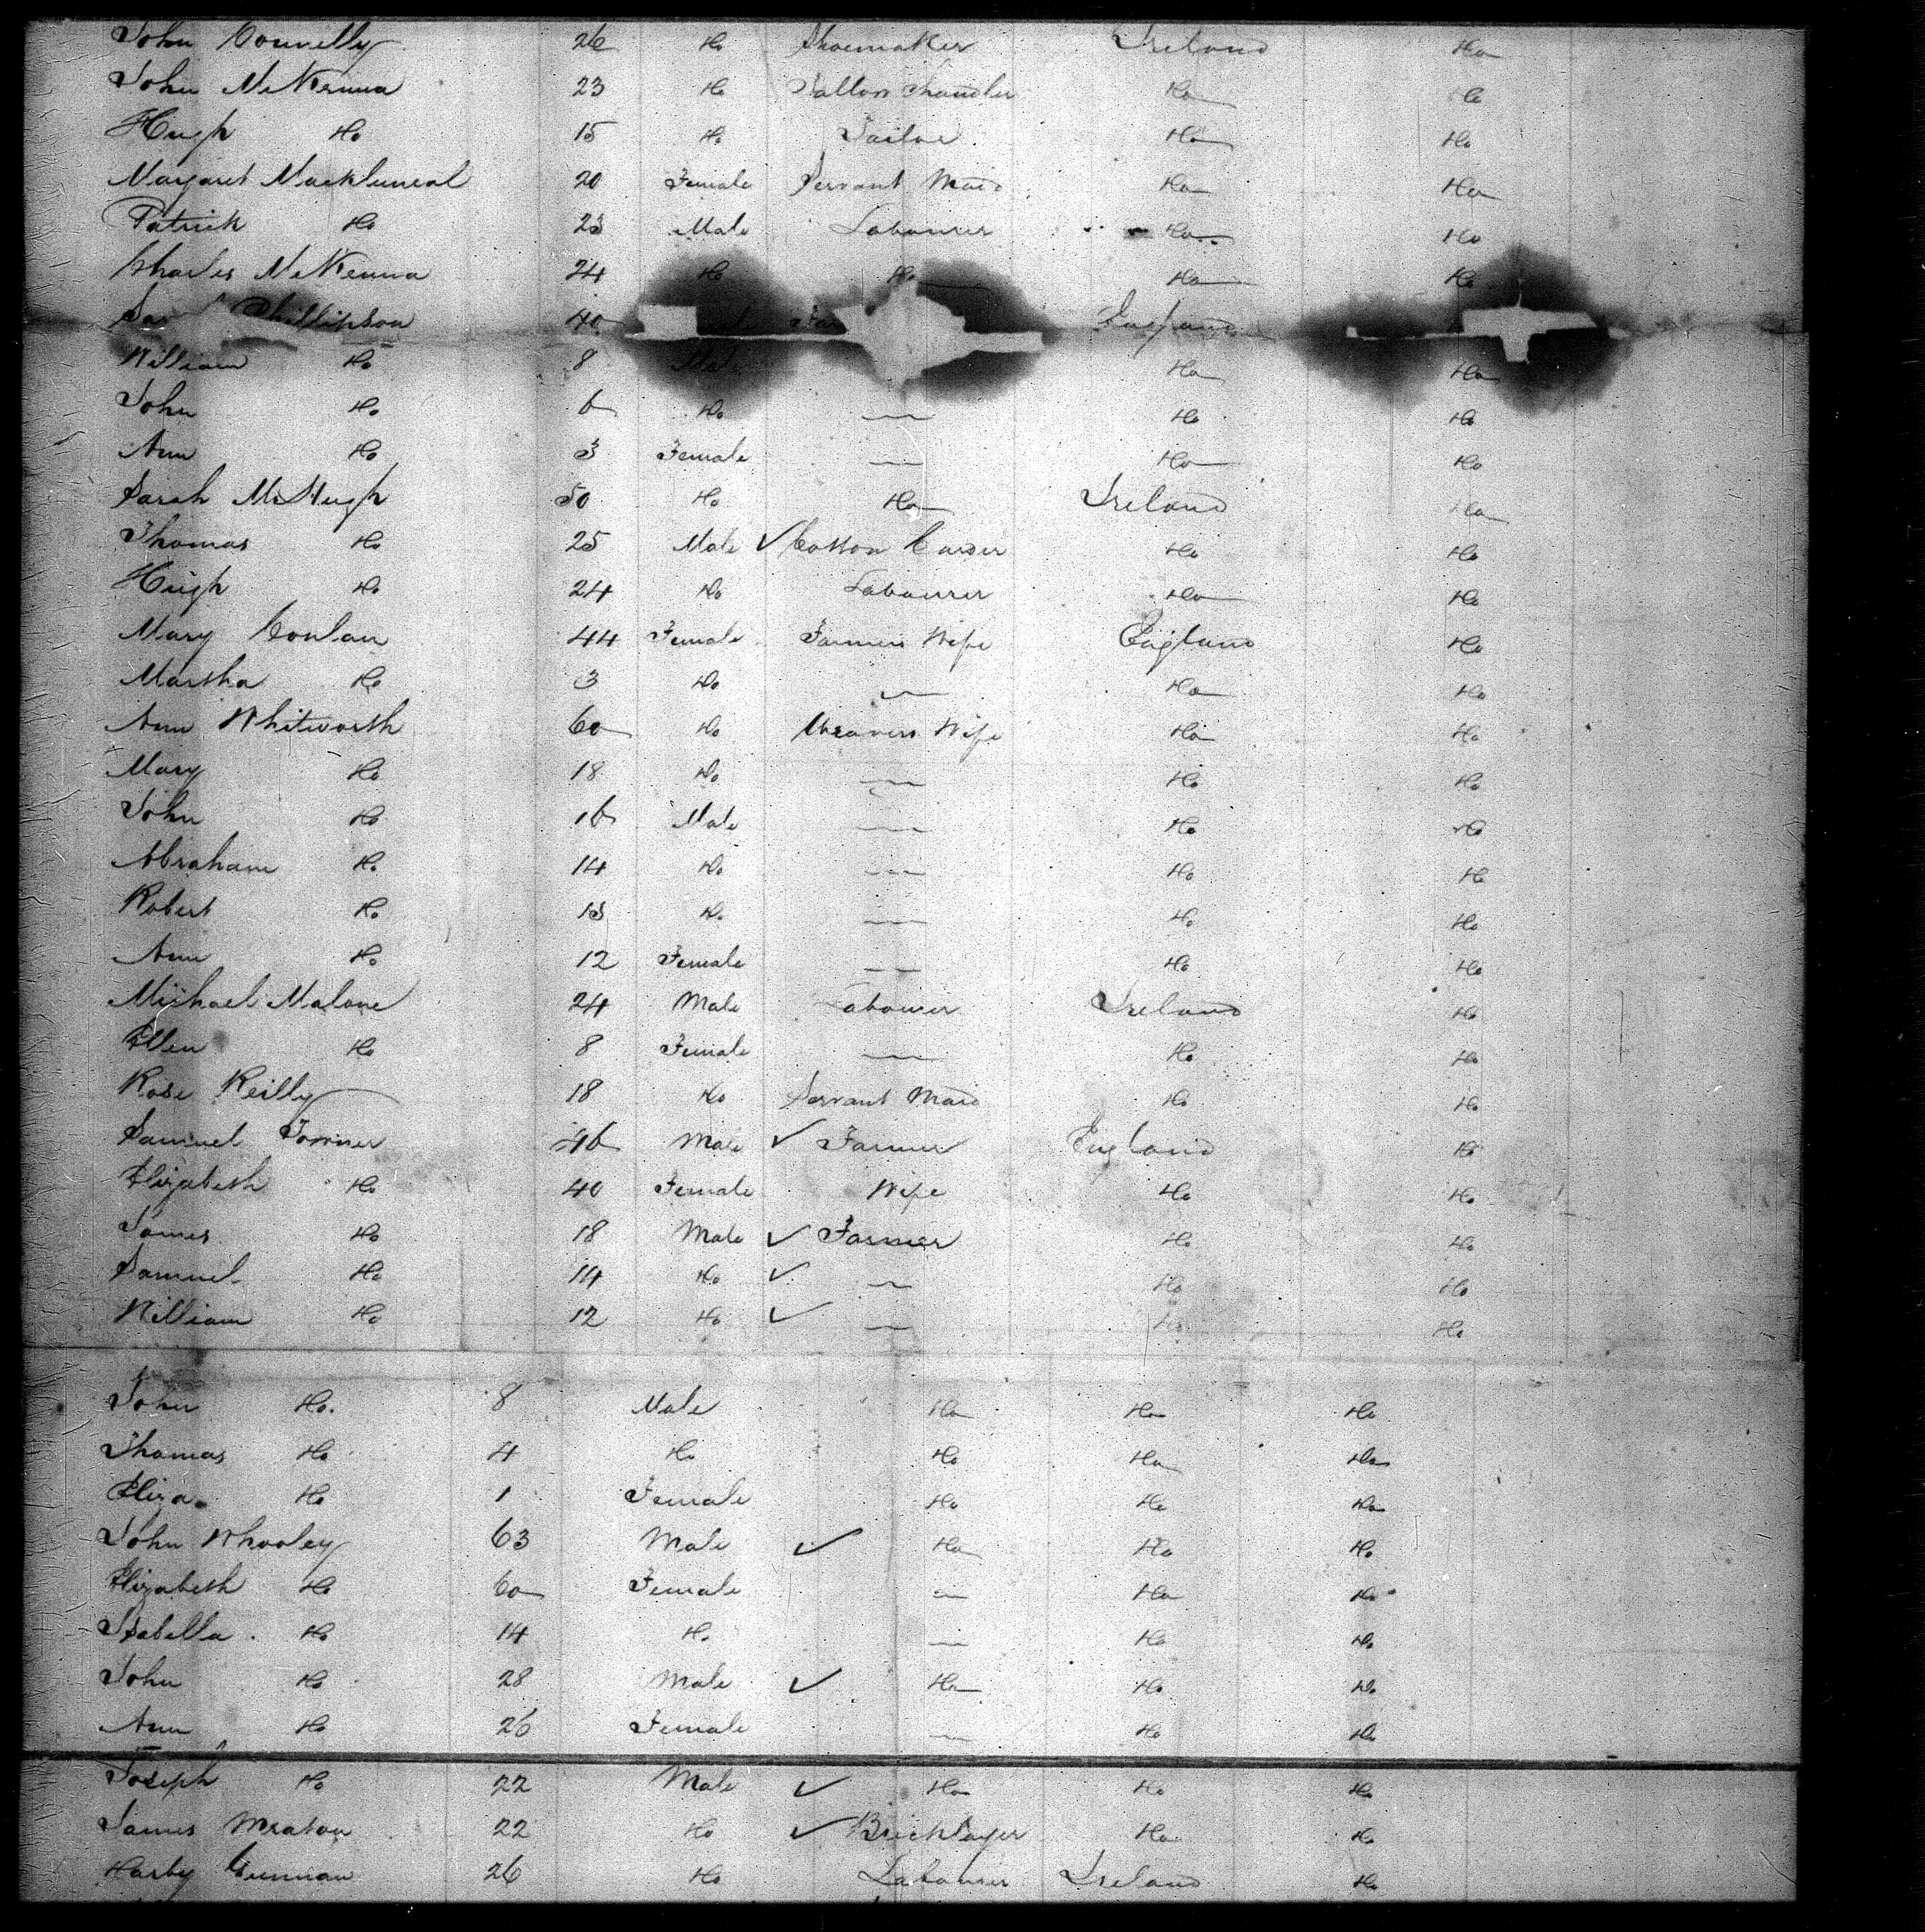 John Connelly 26 Do Shoemaker Ireland Do
John McKenna 23 Do Tallow Chandler Do Do
Hugh Do 15 Do Tailor Do Do
Margaret 20 Female Servant Maid Do Do
Patrick Do 23 Male Labourer Do Do
Charles McKenna 24 Do Do Do Do
Phillipson 40 England
William Do 8 Male Do Do
John Do 6 Do — Do Do
Ann Do 3 Female — Do Do
Sarah McHugh 50 Do Do Ireland Do
Thomas Do 25 Male ✓ Cotton Carder Do Do
Hugh Do 24 Do Labourer Do Do
Mary Conlan 44 Female Farmers Wife England Do
Martha Do 3 Do — Do Do
Ann Whitworth 60 Do Weavers Wife Do Do
Mary Do 18 Do — Do Do
John Do 16 Male — Do Do
Abraham Do 14 Do — Do Do
Robert Do 13 Do — Do Do
Ann Do 12 Female — Do Do
Michael Malone 24 Male Labourer Ireland Do
Ellen Do 8 Female — Do Do
Rose Reilly 18 Do Servant Maid Do Do
Samuel 46 Male ✓ Farmer England Do
Elizabeth Do 40 Female Wife Do Do
James Do 18 Male ✓ Farmer Do Do
Samuel Do 14 Do ✓ — Do Do
William Do 12 Do ✓ — Do Do
John Do. 8 Male Do Do Do
Thomas Do 4 Do Do Do Do
Eliza Do 1 Female Do Do Do
John Whooley 63 Male ✓ Do Do Do
Elizabeth Do 60 Female — Do Do
Isabella Do 14 Do — Do Do
John Do 28 Male ✓ Do Do Do
Ann Do 26 Female — Do Do
Joseph Do 22 Male ✓ Do Do Do
James 22 Do ✓ Bricklayer Do Do
26 Do Labourer Ireland Do